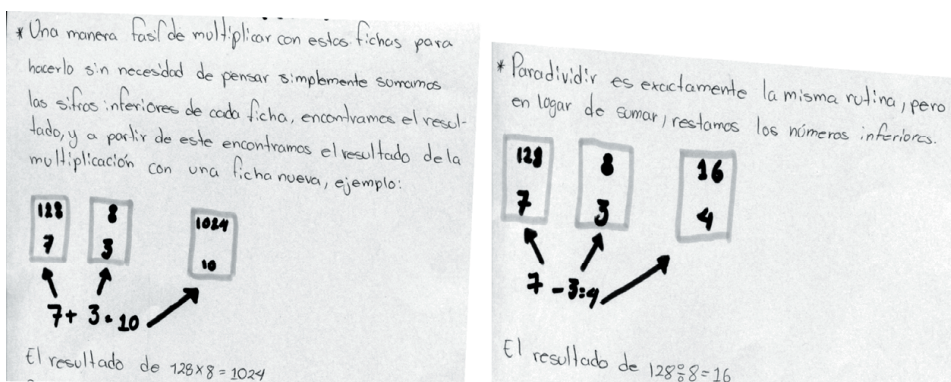 * Una manera fasil de multiplicar con estas fichas para
hacerlo sin necesidad de pensar simplemente sumamos
las sifras inferiores de cada ficha, encontramos el resul-
tado, y a partir de este encontramos el resultado de la
multiplicación con una ficha nueva, ejemplo:
128 8 1024
7 3 10
7 + 3 = 10
El resultado de 128 x 8 = 1024
* Para dividir es exactamente la misma rutina, pero
en logar de sumar, restamos los números inferiores.
128 8 16
7 3 4
7 - 3 = 4
El resultado de 128 ÷ 8 = 16